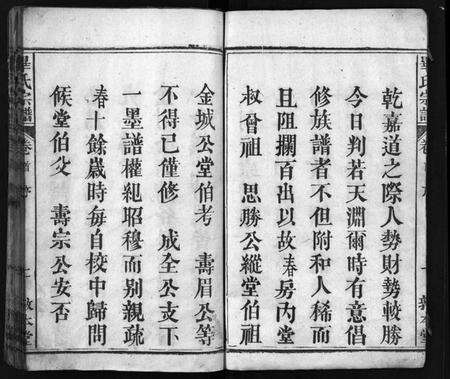 乾嘉道之際人勢財勢較勝
今日判若天淵爾時有意倡
修族譜者不但附和人稀而
且阻攔百出以故春房內堂
叔曾祖 思勝公縱堂伯祖
畢氏宗譜 卷首 敦本堂
金城公堂伯考 壽眉公等
不得已僅修 成全公支下
一墨譜權紀昭穆而別親疏
春十餘歲時每自校中歸問
候堂伯父 壽宗公安否
畢氏宗譜 卷首 七 敦本堂